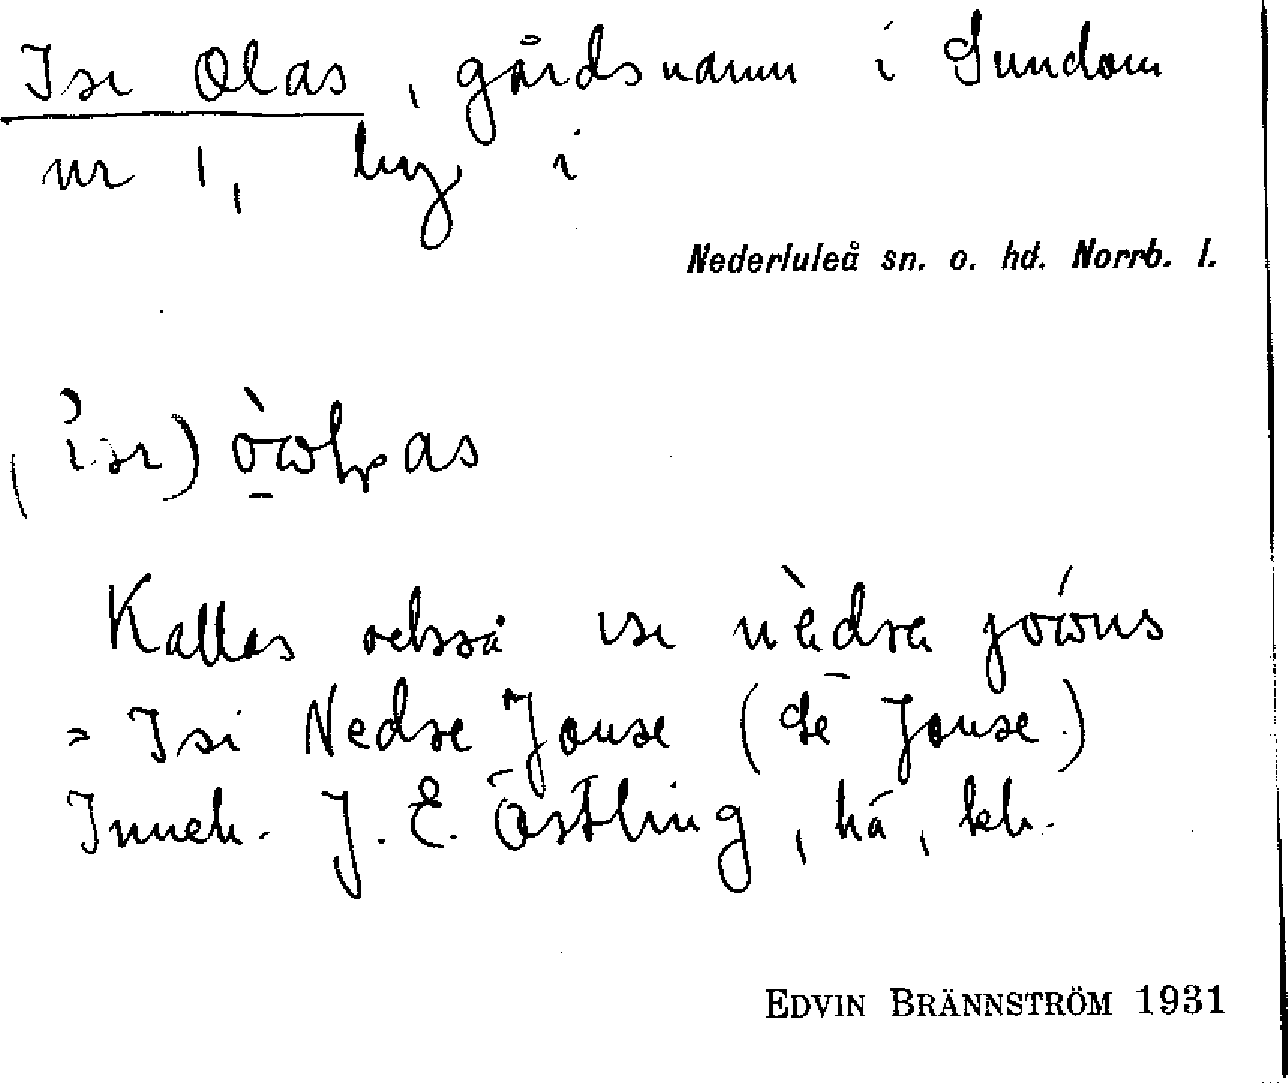 Isi Olas, gårdsnamn i Sundom
nr 1, by i
Nederluleå sn. o. hd. Norrb. l.
Kallas också isi nèdre
= Isi Nedre Jonse (se Jonse.)
Inneh. J. E. Östling, hä, kh.
EDVIN BRÄNNSTRÖM 1931